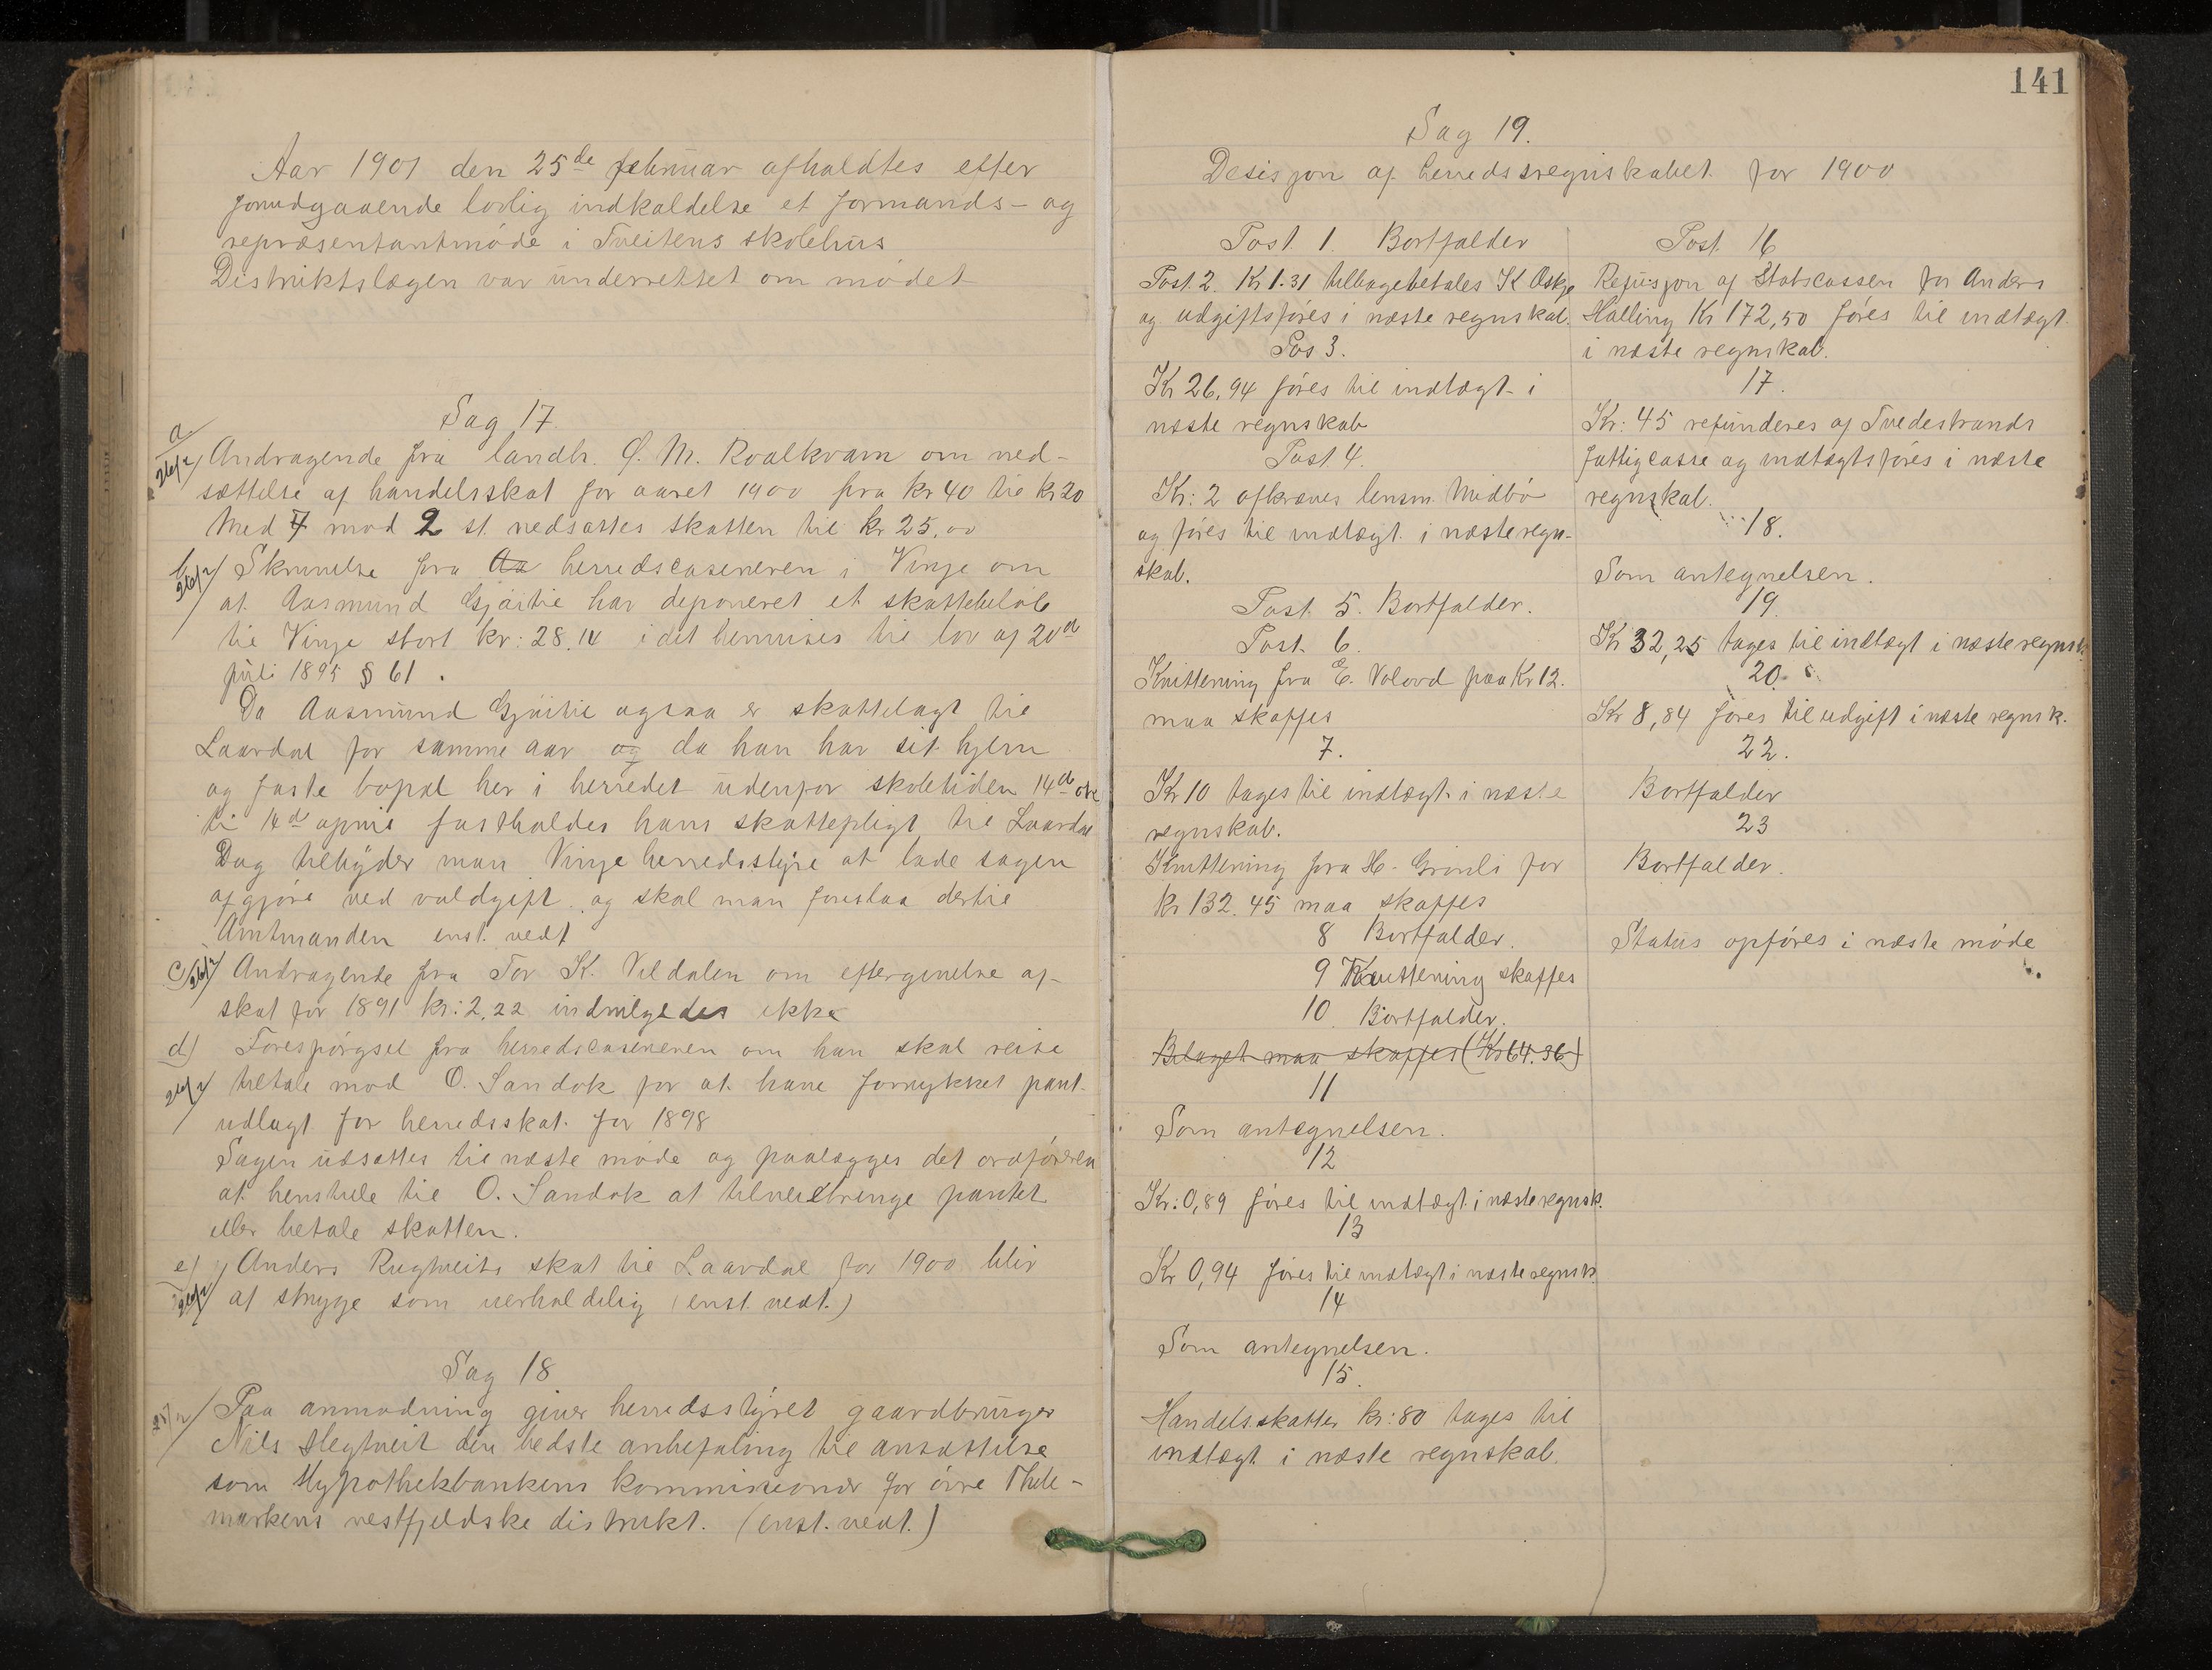 Aar 1901 den 25de februar afholdtes efter
forudgaaende lovlig indkaldelse et formands- og
repræsentantmöde i Tveitens skolehus
Distriktslægen var underrettet om mödet
Sag 17.
a
26/2 Andragende fra landh. O. M. Roalkvam om ned-
sættelse af handelsskat for aaret 1900 fra kr 40 til kr 20
Med 7 mod 2 st. nedsattes skatten til kr 25,00
b
26/2 Skrivelse fra Aa herredscasereren i Vinje om
at Aasmund Gjuitil har deponeret et skattebelöb
til Vinje stort kr: 28.14 i det henvises til lov af 20de
juli 1895 § 61.
Da Aasmund Gjuitil ogsaa er skattelagt til
Laardal for samme aar og da han har sit hjem
og faste bopæl her i herredet udenfor skoletiden 14de okt
til 14de april fastholdes hans skattepligt til Laardal
Dog tilbyder man Vinje herredsstyre at lade sagen
afgjöre ved voldgift og skal man foreslaa dertil
Amtmanden enst. vedt
c) 26/2 Andragende fra Tor K. Vildalen om eftergivelse af
skat for 1891 kr: 2,22 indvilgedes ikke
d) Forespörgsel fra herredscasereren om han skal reise
26/2 tiltale mod O. Sandok for at have forrykket pant-
udlagt for herredsskat for 1898
Sagen udsættes til næste möde og paalægges det ordföreren
at henstille til O. Sandok at tilveiebringe pantet
eller betale skatten.
e) Anders Rugtveits skat til Laardal for 1900 blir
26/2 at stryge som uerholdelig (enst. vedt.)
Sag 18
25/2 Paa anmodning giver herredsstyret gaardbruger
Nils Slegtveit den bedste anbefaling til ansættelse
som Hypothekbankens kommissionær for övre Thele-
markens vestfjeldske distrikt. (enst. vedt.)
141
Sag 19.
Desisjon af herredsregnskabet for 1900
Post. 1. Bortfalder
Post. 2. Kr 1.31 tilbagebetales K Oskje
og udgiftsföres i næste regnskab.
Pos 3.
Kr 26,94 föres til indtægt i
næste regnskab
Post 4.
Kr: 2 afkræves lensm. Midbö
og föres til indtægt i næste regn-
skab.
Post. 5. Bortfalder.
Post. 6.
Knittering fra E. Valord paa Kr 12.
maa skaffes
7.
Kr 10 tages til indtægt i næste
regnskab.
Knittering fra H. Grönli for
kr 132.45 maa skaffes
8 Bortfalder.
9 Knittering skaffes
10 Bortfalder.
Bilaget maa skaffes (Kr 64.36)
11
Som antegnelsen.
12
Kr: 0,89 föres til indtægt i næste regnsk.
13
Kr 0,94 föres til indtægt i næste regnsk.
14
Som antegnelsen.
15.
Handelsskatter kr: 80 tages til
indtægt i næste regnskab.
Post. 16
Refusjon af Statscassen for Anders
Halling Kr 172,50 föres til indtægt
i næste regnskab.
17.
Kr: 45 refunderes af Tvedestrands
fattigcasse og indtægtsföres i næste
regnskab.
18.
Som antegnelsen.
19.
Kr 32,25 tages til indtægt i næste regnsk.
20.
Kr 8,84 föres til udgift i næste regnsk.
22.
Bortfalder
23
Bortfalder.
Status opföres i næste möde